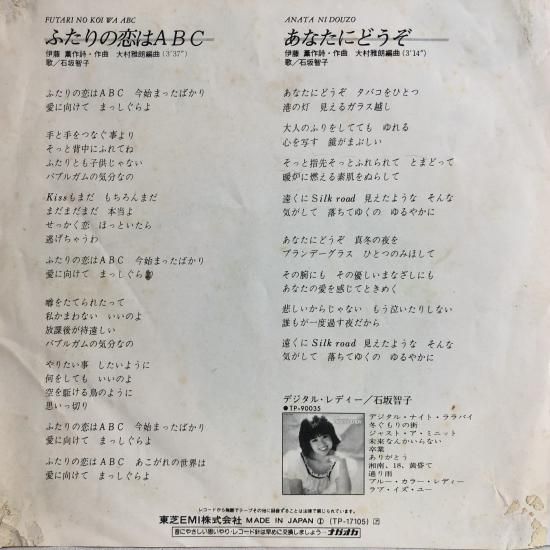 FUTARI NO KOI WA ABC
ふたりの恋はABC
伊藤 薫作詩・作曲 大村雅朗編曲(3'37")
歌/石坂智子
ふたりの恋はABC 今始まったばかり
愛に向けて まっしぐらよ
手と手をつなぐ事より
そっと背中にふれてね
ふたりとも子供じゃない
バブルガムの気分なの
Kissもまだ もちろんまだ
まだまだまだ 本当よ
せっかく恋 ほっといたら
逃げちゃうわ
ふたりの恋はABC 今始まったばかり
愛に向けて まっしぐら
噂をたてられたって
私かまわない いいのよ
放課後が待遠しい
バブルガムの気分なの
やりたい事 したいように
何をしても いいのよ
空を駆ける鳥のように
思いっ切り
ふたりの恋はABC 今始まったばかり
愛に向けて まっしぐらよ
ふたりの恋はABC あこがれの世界は
愛に向けて まっしぐらよ
ANATA NI DOUZO
あなたにどうぞ
伊藤 薫作詩・作曲 大村雅朗編曲(3'14")
歌/石坂智子
あなたにどうぞ タバコをひとつ
港の灯 見えるガラス越し
大人のふりをしてても ゆれる
心を写す 鏡がまぶしい
そっと指先そっとふれられて とまどって
暖炉に燃える素肌をぬらして
遠くにSilk road 見えたような そんな
気がして 落ちてゆくの ゆるやかに
あなたにどうぞ 真冬の夜を
ブランデーグラス ひとつのみほして
その腕にも その優しいまなざしにも
あなたの愛を感じてときめく
悲しいからじゃない もう泣いたりしない
誰もが一度過す夜だから
遠くにSilk road 見えたような そんな
気がして 落ちてゆくの ゆるやかに
デジタル・レディー/石坂智子
●TP-90035
デジタル・ナイト・ララバイ
冬ぐもりの街
ジャスト・ア・ミニット
未来なんかいらない
卒業
ありがとう
湘南、18、黄昏て
通り雨
ブルー・カラー・レディー
ラブ・イズ・ユー
レコードから無断でテープその他に録音することは法律で禁じられています。
東芝EMI株式会社 MADE IN JAPAN (TP-17105)
音にやさしい思いやり・レコード針は早めに交換しましょう…ナガオカ